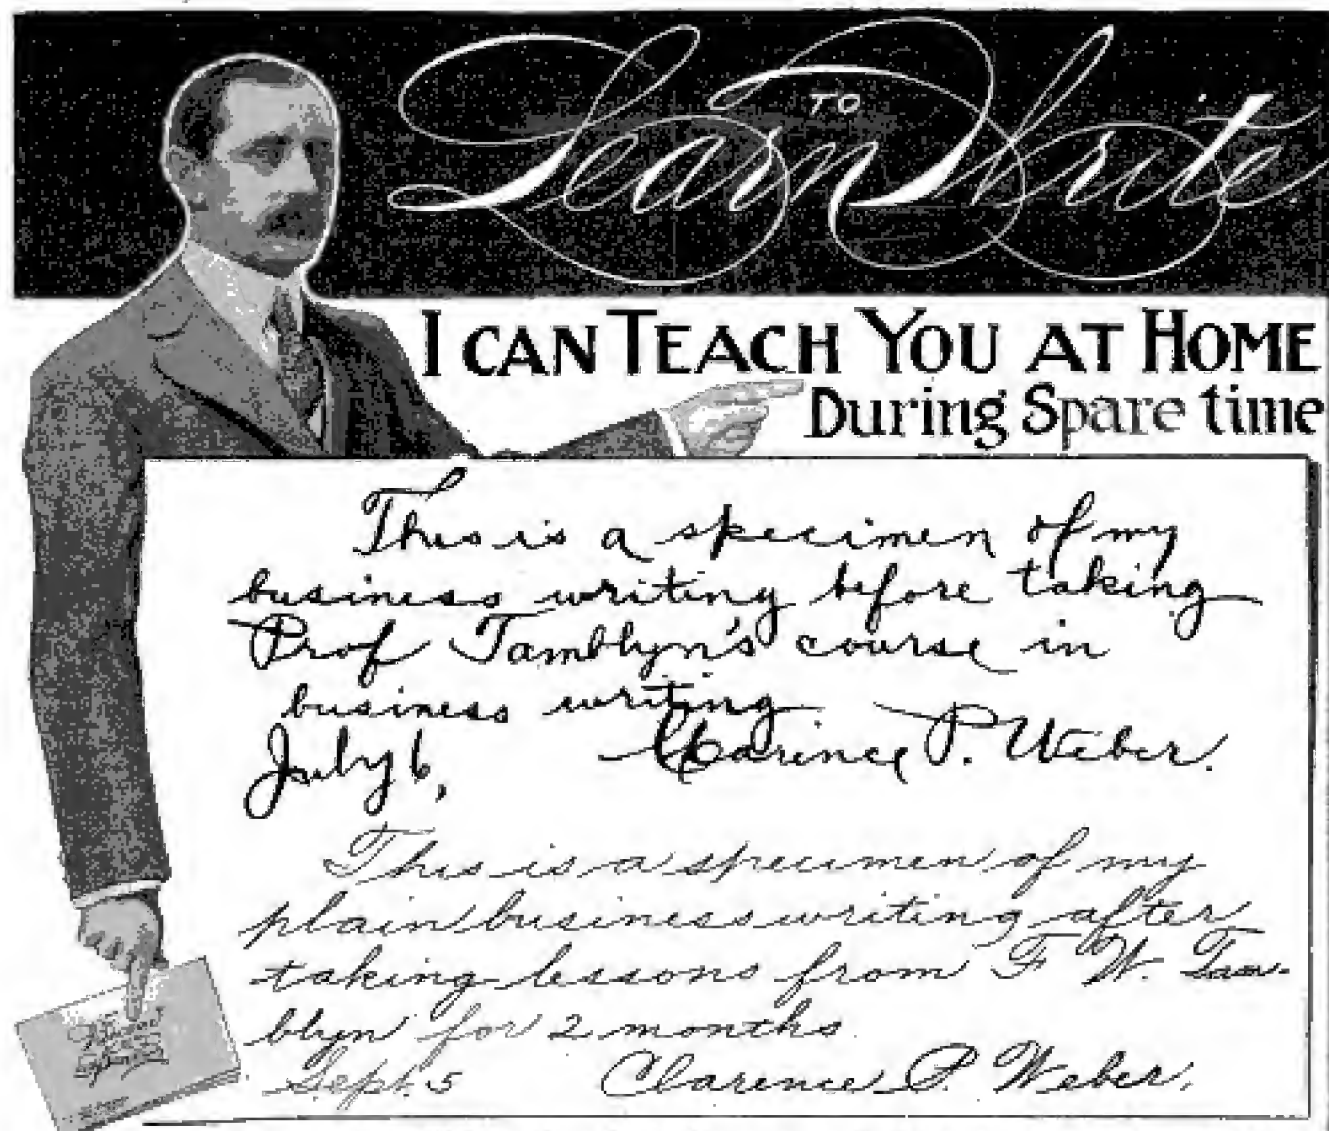 Learn TO Write
I CAN TEACH YOU AT HOME
During Spare time
This is a specimen of my
business writing before taking
Prof Tamblyn's course in
business writing
Clarence P. Weber.
July 6,
This is a specimen of my
plain business writing after
taking lessons from F. W. Tam-
blyn for 2 months.
Sept. 5 Clarence P. Weber.